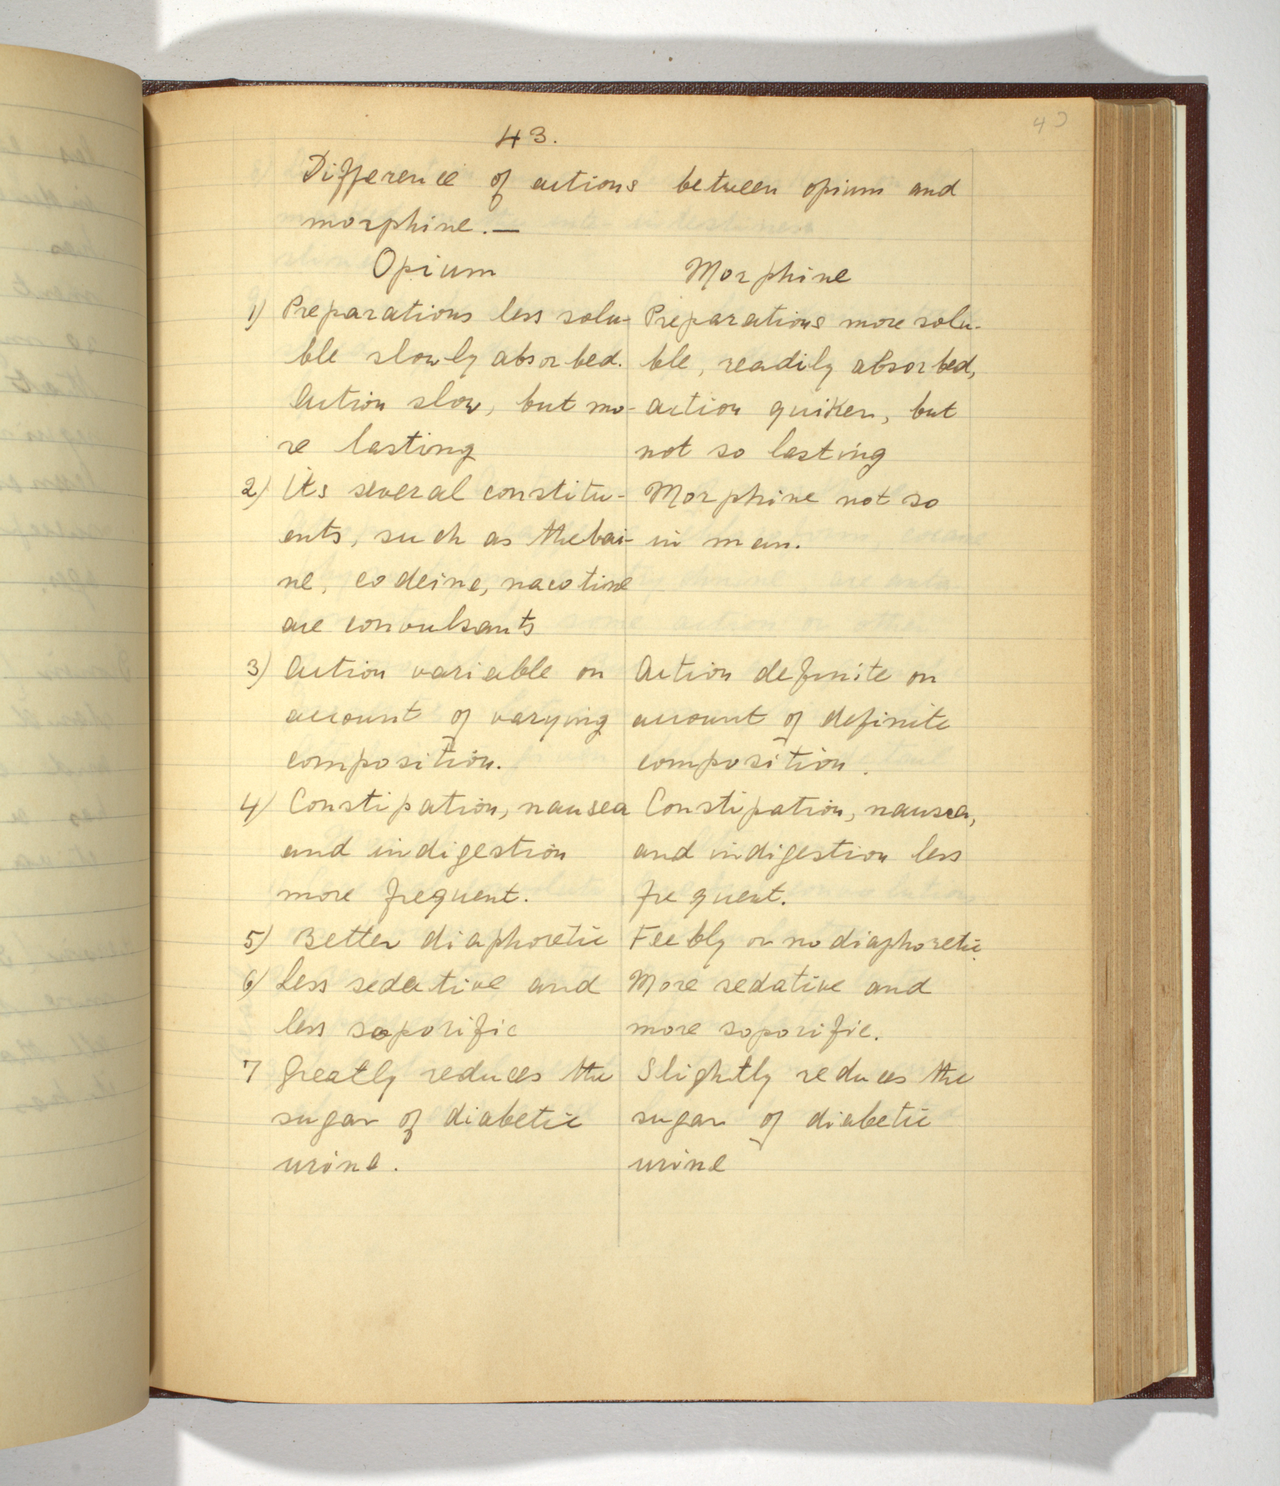 43.
43
Difference of actions between opium and
morphine.—
Opium
1) Preparations less solu-
ble slowly absorbed.
Action slow, but mo-
re lasting
2) Its several constitu-
ents, such as thebai-
ne, codeine, nacotine
are convulsants
3) Action variable on
account of varying
composition.
4) Constipation, nausea
and indigestion
more frequent.
5) Better diaphoretic
6) Less sedative and
less soporific
7 Greatly reduces the
sugar of diabetic
urine.
Morphine
Preparations more solu-
ble, readily absorbed,
action quiker, but
not so lasting
Morphine not so
in man.
Action definite on
account of definite
composition.
Constipation, nausea,
and indigestion less
frequent.
Feebly or no diaphoretic.
More sedative and
more soporific.
Slightly reduces the
sugar of diabetic
urine